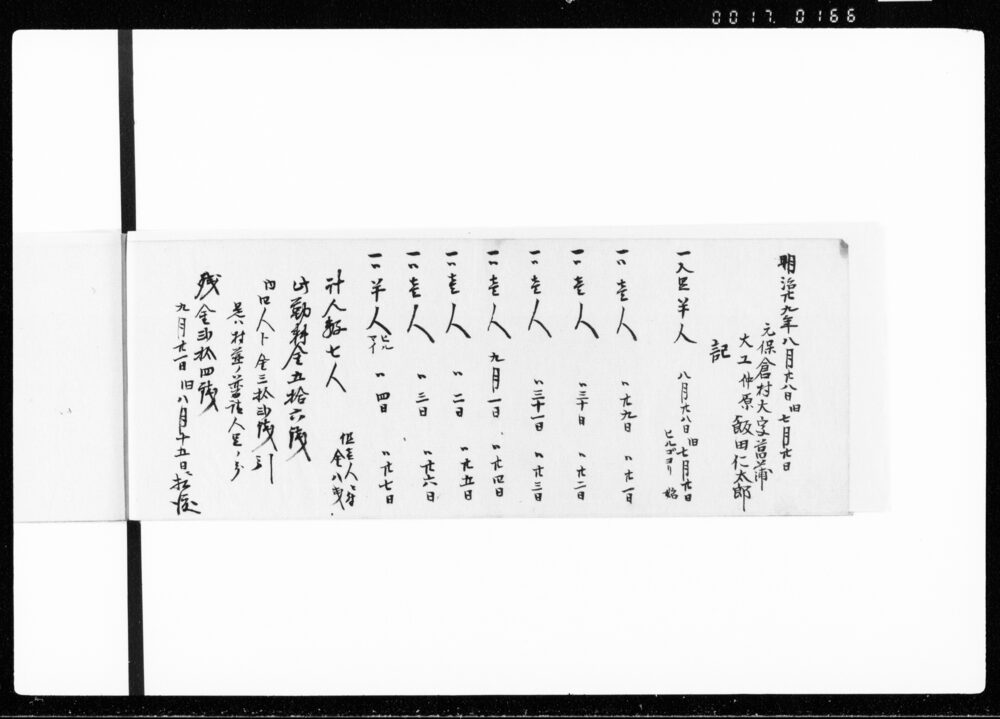 0017. 0166
明治廿九年八月廿八日旧七月廿日
元保倉村大字菖蒲
大工仲原 飯田仁太郎
記
一人足半人 八月廿八日旧七月廿日 ヒルゴヨリ始
一〃壱人 〃廿九日 〃廿一日
一〃壱人 〃三十日 〃廿二日
一〃壱人 〃三十一日 〃廿三日
一〃壱人 九月一日 〃廿四日
一〃壱人 〃二日 〃廿五日
一〃壱人 〃三日 〃廿六日
一〃半人 ヒルマイ 〃四日 〃廿七日
計人数七人 但壱人ニ付金八戋
此勤料金五拾六戋
内四人ト金三拾弐戋引
是ハ村並ノ普請人足ノ分
残金弐拾四戋
九月廿一日旧八月十五日ニ払済